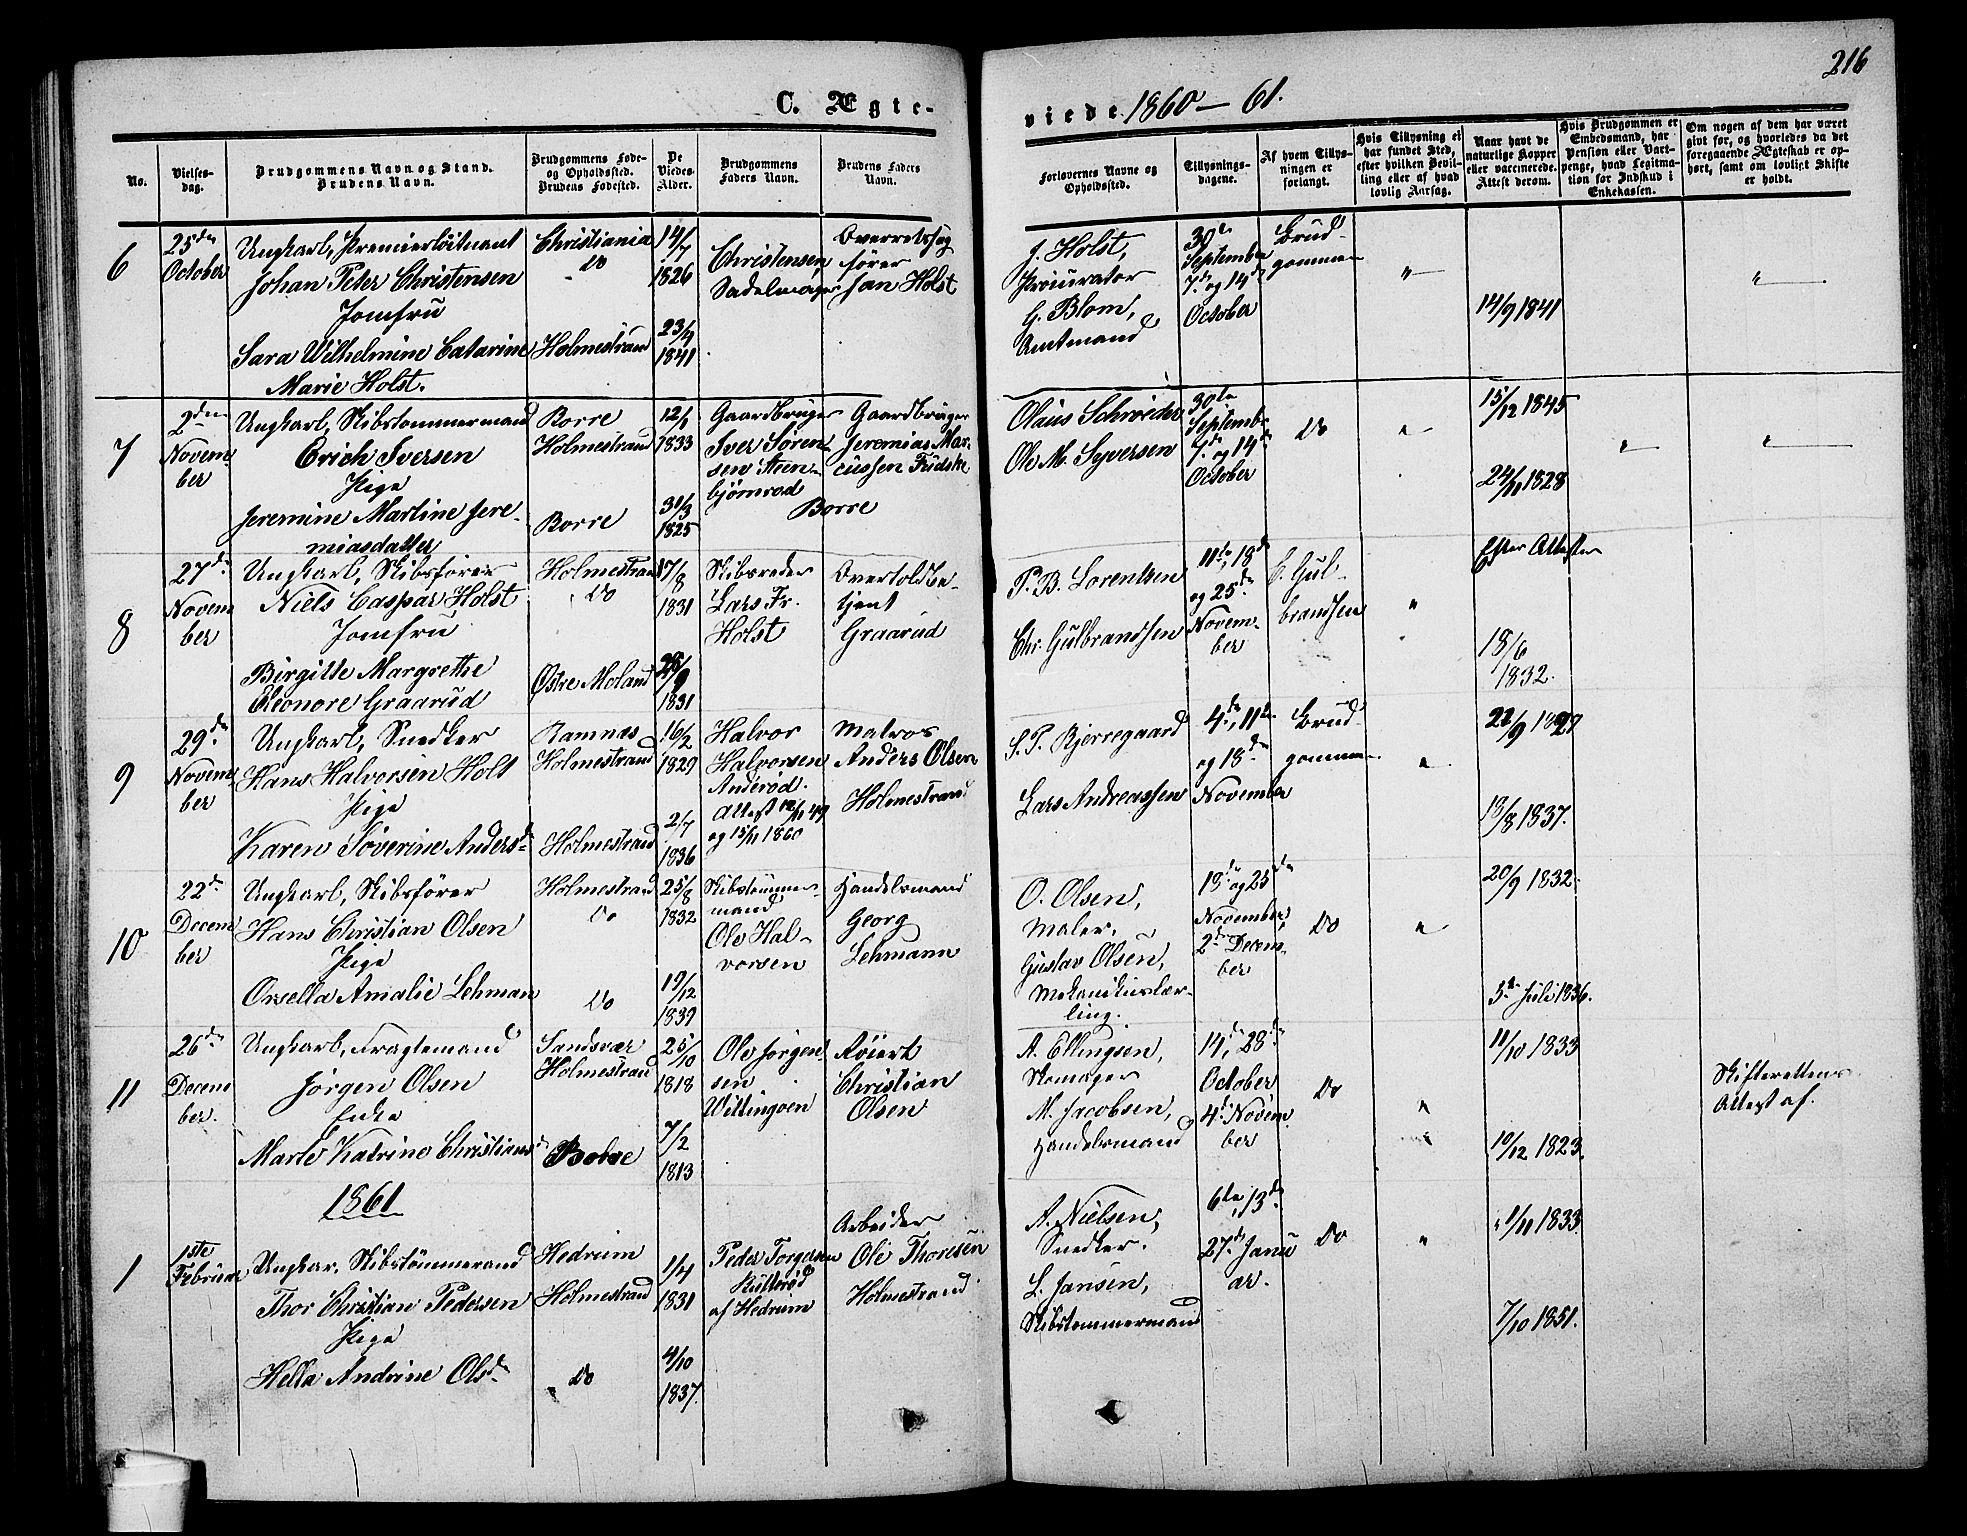 216
C. Ægte-
viede 1860-61.
No.
Vielses-
dag.
Brudgommens Navn og Stand.
Brudens Navn.
Brudgommens Føde-
og Opholdssted.
Brudens Fødested.
De
Viedes
Alder.
Brudgommens
Faders Navn.
Brudens Faders
Navn.
Forlovernes Navne og
Opholdssted.
Tillysnings-
dagene.
Af hvem Tillys-
ningen er
forlangt.
Hvis Tillysning ei
har fundet Sted,
efter hvilken Bevil-
ling eller af hvad
lovlig Aarsag.
Naar havt de
naturlige Kopper
eller vaccinerede.
Attest derom.
Hvis Brudgommen er
Embedsmand, har
Pension eller Vart-
penge, hvad Legitima-
tion for Indskud i
Enkekassen.
Om nogen af dem har været
givt før, og hvorledes da det
foregaaende Ægteskab er op-
hørt, samt om lovligt Skifte
er holdt.
6
25de
October
Ungkarl, Premierløitnant
Johan Peter Christensen
Jomfru
Sara Wilhelmine Catarine
Marie Holst.
Christiania
Do
Holmestrand
14/7
1826
23/9
1841
Christensen
Sadelmager
Overretssag
fører
Jan Holst
J. Holst,
Procurator
G. Blom,
Amtmand
30te
September
7de og 14de
October
Brud-
gommen
"
14/9 1841
"
7
2den
Novem-
ber
Ungkarl, Skibstømmermand
Erich Iversen
Pige
Jeremine Martine Jere-
miasdatter
Borre
Holmestrand
Borre
12/1
1833
31/3
1825
Gaardbruger
Iver Søren-
sen Steen-
bjørnrød
Gaardbruger
Jeremias Mar-
cussen Fudske
Borre
Olaus Schrøder
Ole M. Syversen
30te
Septembr
7de og 14de
October
Do
"
15/12 1845
24/11 1828
"
"
8
27de
Novem
ber
Ungkarl, Skibsfører
Niels Caspar Holst
Jomfru
Birgitte Margrethe
Eleonore Graarud
Holmestrand
Do
Østre Moland
17/8
1831
28/9
1831
Skibsreder
Lars Fr.
Holst
Overtoldbe-
tjent
Graarud
P. B. Lorentzen
Chr. Gulbrandsen
11te, 18de
og 25de
Novem-
ber
C. Gul-
brandsen
"
Efter Attester
18/6
1832.
9
29de
Novem
ber
Ungkarl, Snedker
Hans Halvorsen Holt
Pige
Karen Søverine Andersd.
Ramnes
Holmestrand
Holmestrand
16/2
1829
2/7
1836
Halvor
Halvorsen
Anderød.
Attest 12/11 49
og 15/11 1860
Matros
Anders Olsen
Holmestrand
S. P. Bjerregaard
Lars Andreassen
4de, 11te
og 18de
November
Brud-
gommen
"
13/8 1837.
10
22de
Decem
ber
Ungkarl, Skibsfører
Hans Christian Olsen
Pige
Orsella Amalie Lehman
Holmestrand
Do
Do
25/8
1832
19/12
1839
Skibstømmer-
mand
Ole Hal-
vorsen
Handelsmand
Georg
Lehmann
O. Olsen,
Maler,
Gustav Olsen,
Mekanikuslær-
ling.
18de og 25de
November,
2de Decem-
ber
Do
"
20/9 1832.
5te Juli 1836.
11
26de
Decem
ber.
Ungkarl, Fragtemand
Jørgen Olsen
Enke
Marte Katrine Christiansd.
Sandsvær
Holmestrand
Botne
25/10
1818
7/2
1813
Ole Jørgen-
sen
Wittingoen
Røiert
Christian
Olsen
A. Ellingsen,
Skomager
M. Jacobsen,
Handelsmand
14de, 28de
October
4de Novem
ber
Do
"
11/10 1833
10/12 1823.
Skifterettens
Attest af.
1861
1
1ste
Februar
Ungkar, Skibstømmermand
Thor Christian Pedersen
Pige
Hella Andrine Olsdr
Hedrum
Holmestrand
Do
1/4
1831
4/10
1837.
Peder Torgersen
af Hedrum
Arbeider
Ole Thoresen
Holmestrand
A. Nielsen,
Snedker.
L. Jansen,
Skibstømmermand
6te, 13de
27de Janu
ar.
Do
"
1/11 1833
7/10 1851.